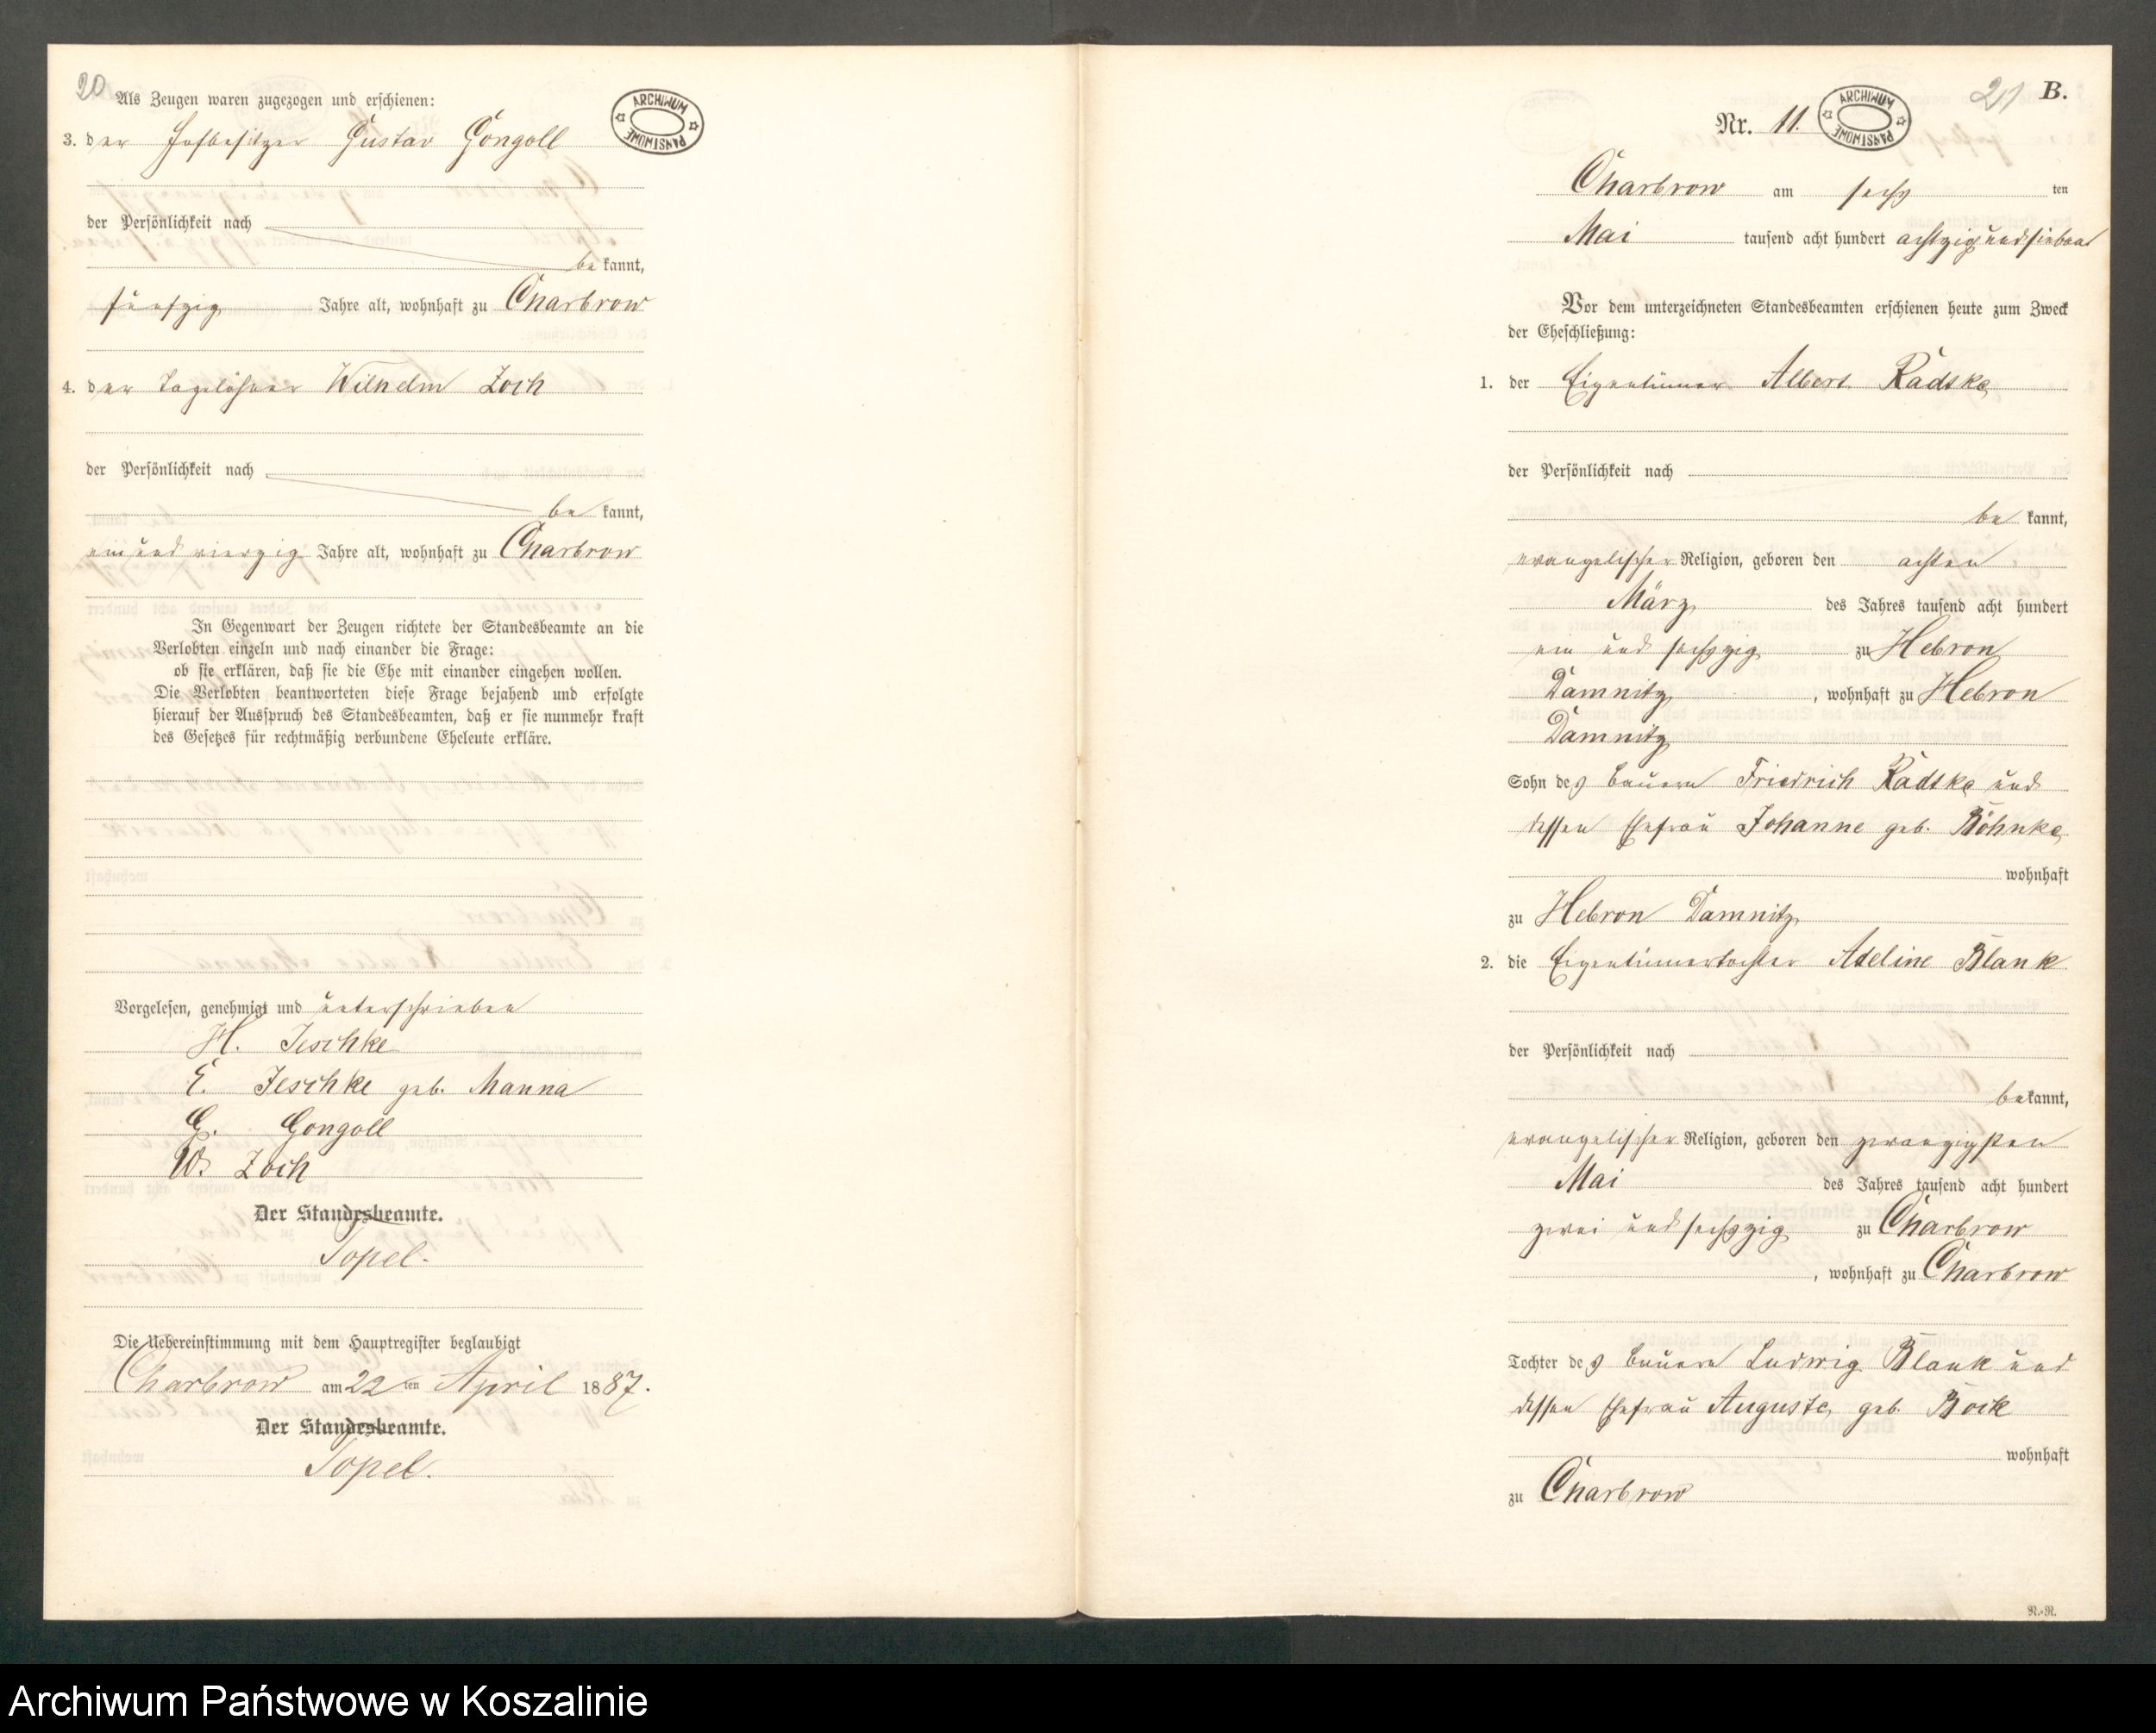 20
Als Zeugen waren zugezogen und erschienen:
ARCHIWUM PAŃSTWOWE
3. der Hofbesitzer Gustav Gongoll
der Persönlichkeit nach
be kannt,
fünfzig Jahre alt, wohnhaft zu Charbrow
4. der Tagelöhner Wilhelm Zoch
der Persönlichkeit nach
be kannt,
ein und vierzig Jahre alt, wohnhaft zu Charbrow
In Gegenwart der Zeugen richtete der Standesbeamte an die
Verlobten einzeln und nach einander die Frage:
ob sie erklären, daß sie die Ehe mit einander eingehen wollen.
Die Verlobten beantworteten diese Frage bejahend und erfolgte
hierauf der Ausspruch des Standesbeamten, daß er sie nunmehr kraft
des Gesetzes für rechtmäßig verbundene Eheleute erkläre.
Vorgelesen, genehmigt und unterschrieben
H. Jeschke
E. Jeschke geb. Manna
G. Gongoll
W. Zoch
Der Standesbeamte.
Topel.
Die Uebereinstimmung mit dem Hauptregister beglaubigt
Charbrow am 22 ten April 1887.
Der Standesbeamte.
Topel.
21 B.
Nr. 11.
ARCHIWUM PAŃSTWOWE
Charbrow am sechs ten
Mai tausend acht hundert achtzig und sieben
Vor dem unterzeichneten Standesbeamten erschienen heute zum Zweck
der Eheschließung:
1. der Eigentümer Albert Radtke
der Persönlichkeit nach
be kannt,
evangelischer Religion, geboren den achten
März des Jahres tausend acht hundert
ein und sechszig zu Hebron
Damnitz, wohnhaft zu Hebron
Damnitz
Sohn des Bauern Friedrich Radtke und
dessen Ehefrau Johanne geb. Böhnke
wohnhaft
zu Hebron Damnitz
2. die Eigentümertochter Adeline Blank
der Persönlichkeit nach
be kannt,
evangelischer Religion, geboren den zwanzigsten
Mai des Jahres tausend acht hundert
zwei und sechszig zu Charbrow
, wohnhaft zu Charbrow
Tochter des Bauern Ludwig Blank und
dessen Ehefrau Auguste geb. Bock
wohnhaft
zu Charbrow
R.-R.
Archiwum Państwowe w Koszalinie